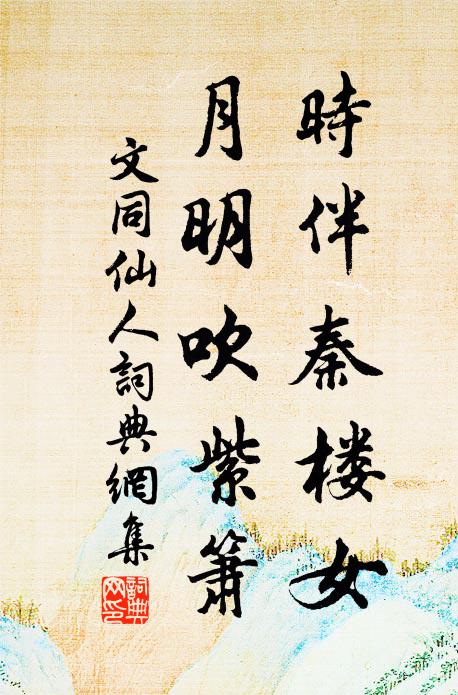 時伴秦楼女
月明吹紫簫
文同仙人詞典網集
詞典